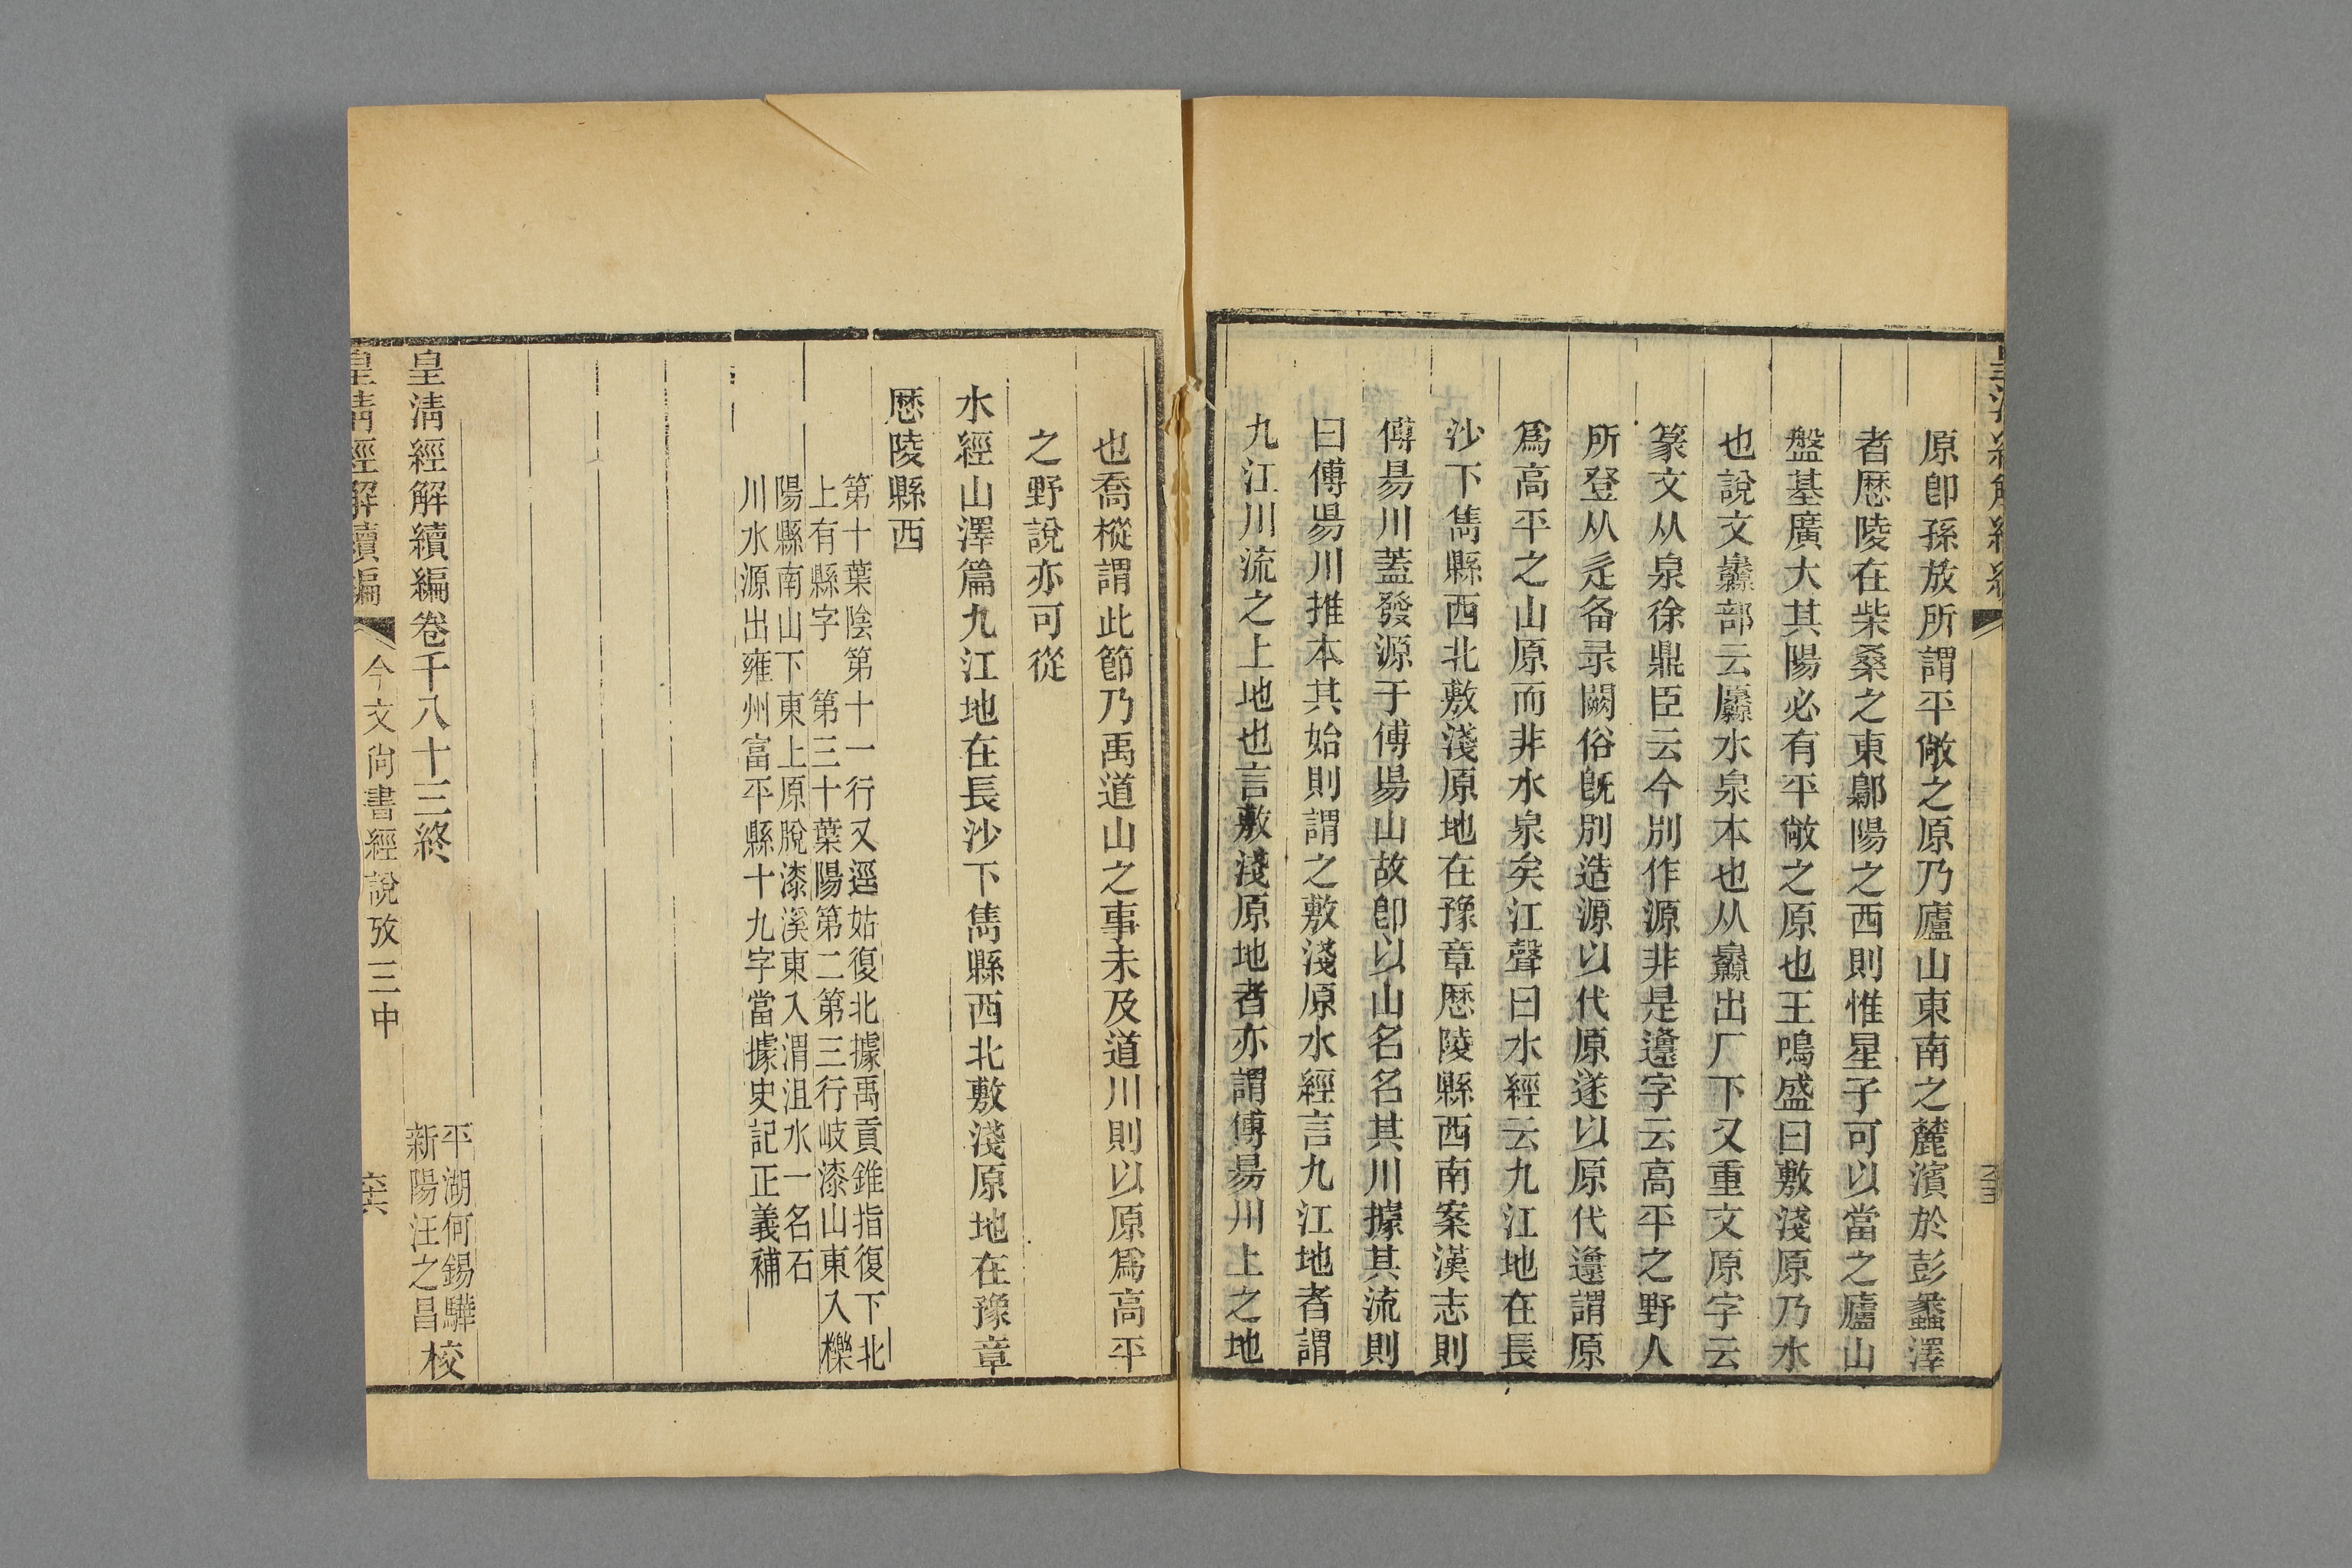 原卽孫放所謂平敞之原乃廬山東南之麓濱於彭蠡澤
者歷陵在柴桑之東鄡陽之西則惟星子可以當之廬山
盤基廣大其陽必有平敞之原也王鳴盛曰敷淺原乃水
也說文灥部云厵水泉本也从灥出厂下又重文原字云
篆文从泉徐鼎臣云今別作源非是邍字云高平之野人
所登从辵备录闕俗旣別造源以代原遂以原代邍謂原
爲高平之山原而非水泉矣江聲曰水經云九江地在長
沙下雋縣西北敷淺原地在豫章歷陵縣西南案漢志則
傅昜川蓋發源于傅昜山故卽以山名名其川據其流則
曰傅昜川推本其始則謂之敷淺原水經言九江地者謂
九江川流之上地也言敷淺原地者亦謂傅昜川上之地
也喬樅謂此節乃禹道山之事未及道川則以原爲高平
之野說亦可從
水經山澤篇九江地在長沙下雋縣西北敷淺原地在豫章
歷陵縣西
第十葉陰第十一行又逕姑復北據禹貢錐指復下北
上有縣字 第三十葉陽第二第三行岐漆山東入櫟
陽縣南山下東上原脫漆溪東入渭沮水一名石
川水源出雍州富平縣十九字當據史記正義補
皇淸經解續編卷千八十三終
平湖何錫驊
新陽汪之昌
校
皇淸經解續編
今文尙書經說攷三中